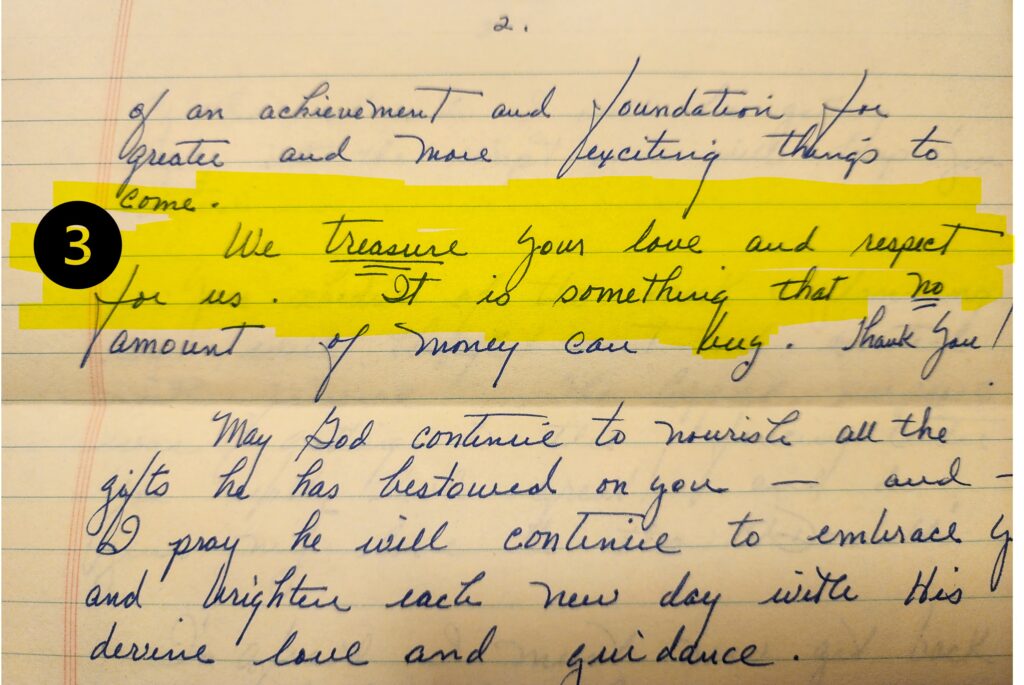 2.
of an achievement and foundation for
greater and more exciting things to
come.
3
We treasure your love and respect
for us. It is something that no
amount of money can buy. Thank you!
May God continue to nourish all the
gifts he has bestowed on you — and —
I pray he will continue to embrace y
and brighten each new day with His
devine love and guidance.